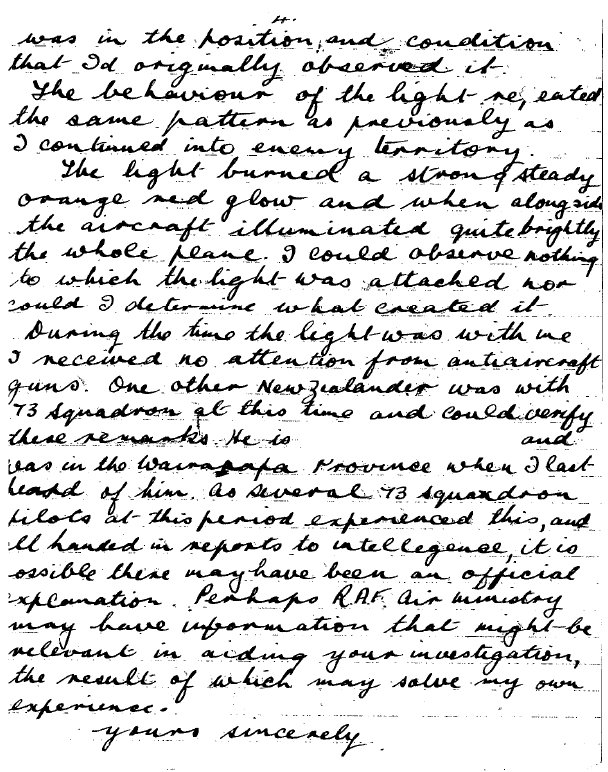 4.
was in the position, and condition
that I'd originally observed it.
The behaviour of the light re, eated
the same pattern as previously as
I continued into enemy territory.
The light burned a strong steady
orange red glow and when alongside
the aircraft illuminated quite brightly
the whole plane. I could observe nothing
to which the light was attached nor
could I determine what created it
During the time the light was with me
I received no attention from antiaircraft
guns. One other New Zealander was with
73 Squadron at this time and could verify
these remarks. He is and
was in the Wairarapa Province when I last
heard of him. As several 73 squadron
pilots at this period experienced this, and
ll handed in reports to intellegence, it is
ossible there may have been an official
explanation. Perhaps R.A.F. Air ministry
may have information that might be
relevant in aiding your investigation,
the result of which may solve my own
experience.
yours sincerely